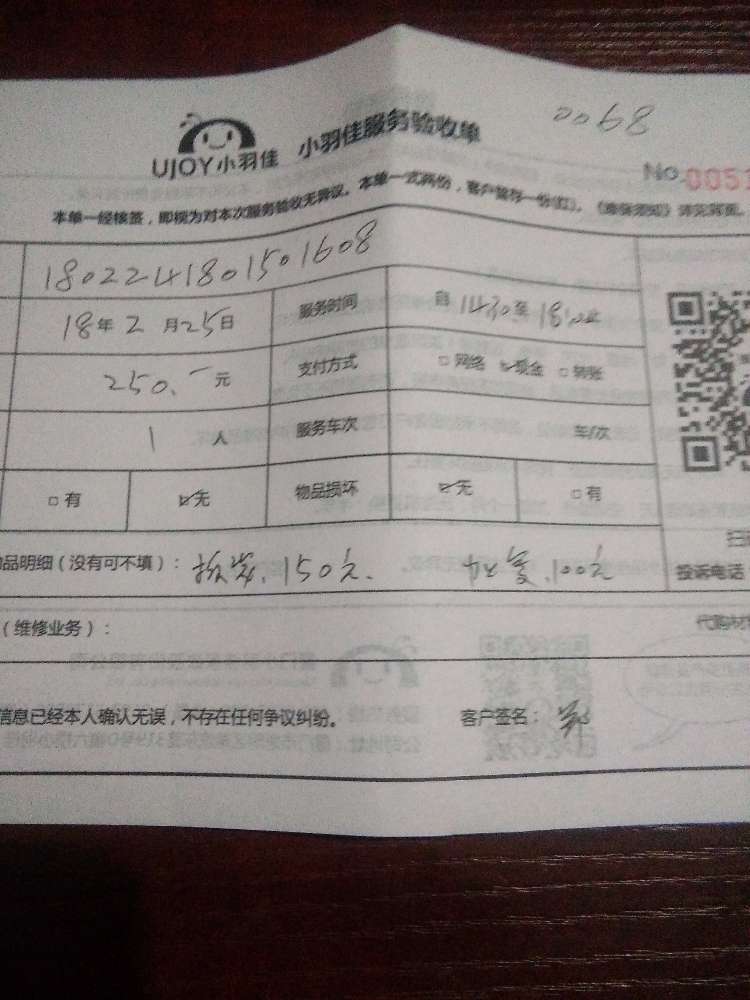 0068
UJOY小羽佳 小羽佳服务验收单
No.0051
本单一经核签，即视为对本次服务验收无异议。本单一式两份，客户留存一份(红)。
1802241801501608
18年2月25日 服务时间 自1430至18:00止
250.-元 支付方式 □网络 ☑现金 □转账
1人 服务车次 车/次
□有 ☑无 物品损坏 ☑无 □有
品明细（没有可不填）： 拆装.150元. 加氟.100元
扫
投诉电话
（维修业务）： 代购材
信息已经本人确认无误，不存在任何争议纠纷。 客户签名：郑